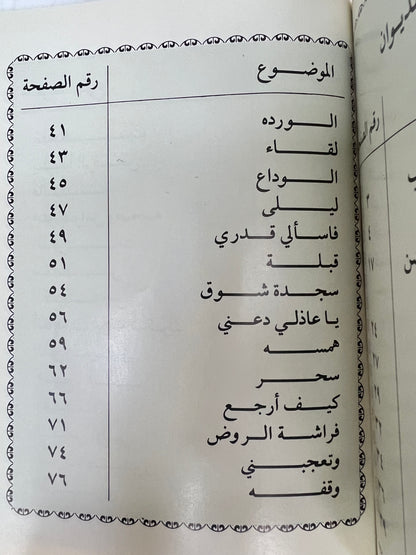 الموضوع رقم الصفحة
الورده ٤١
لقاء ٤٣
الوداع ٤٥
ليلى ٤٧
فاسألي قدري ٤٩
قبلة ٥١
سجدة شوق ٥٤
يا عاذلي دعني ٥٦
همسه ٥٩
سحر ٦٢
كيف أرجع ٦٦
فراشة الروض ٧١
وتعجبني ٧٤
وقفه ٧٦